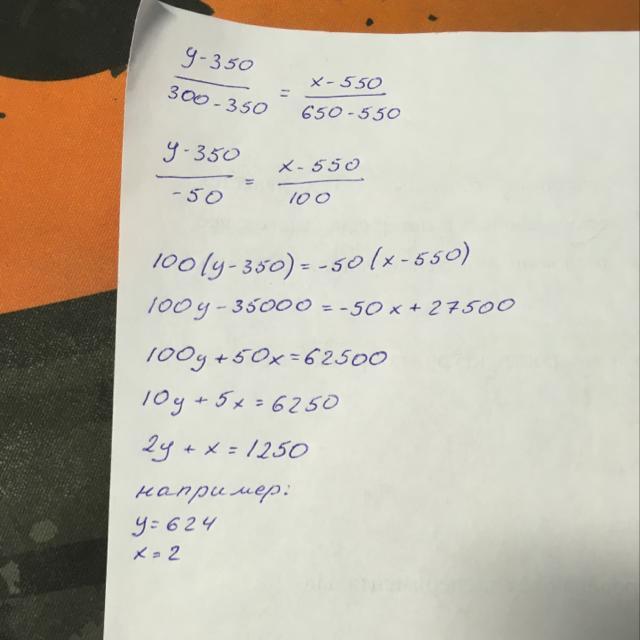 y-350 / 300-350 = x-550 / 650-550
y-350 / -50 = x-550 / 100
100(y-350)=-50(x-550)
100y-35000=-50x+27500
100y+50x=62500
10y+5x=6250
2y+x=1250
например:
y=624
x=2